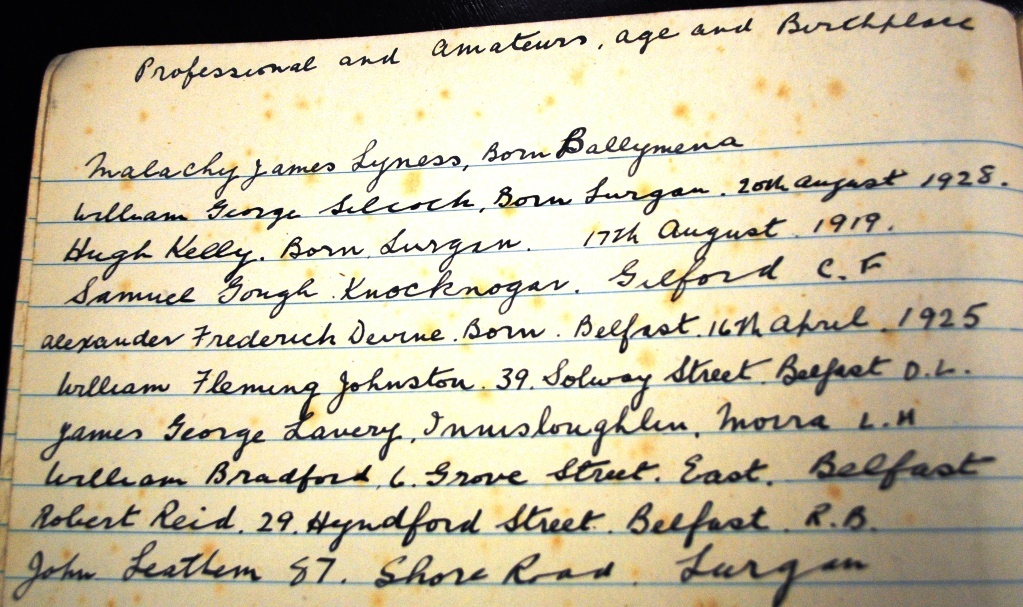 Professional and Amateurs, age and Birthplace
Malachy James Lyness, Born Ballymena
William George Silcock, Born Lurgan. 20th August 1928.
Hugh Kelly. Born Lurgan. 17th August 1919.
Samuel Gough Knocknogar. Gilford C.F
Alexander Frederick Devine. Born. Belfast. 16th April. 1925
William Fleming Johnston. 39. Solway Street. Belfast D.L.
James George Lavery, Innisloughlin, Moira L.H
William Bradford, 6. Grove Street. East. Belfast
Robert Reid. 29. Hyndford Street. Belfast. R.B.
John Leathem 87. Shore Road. Lurgan